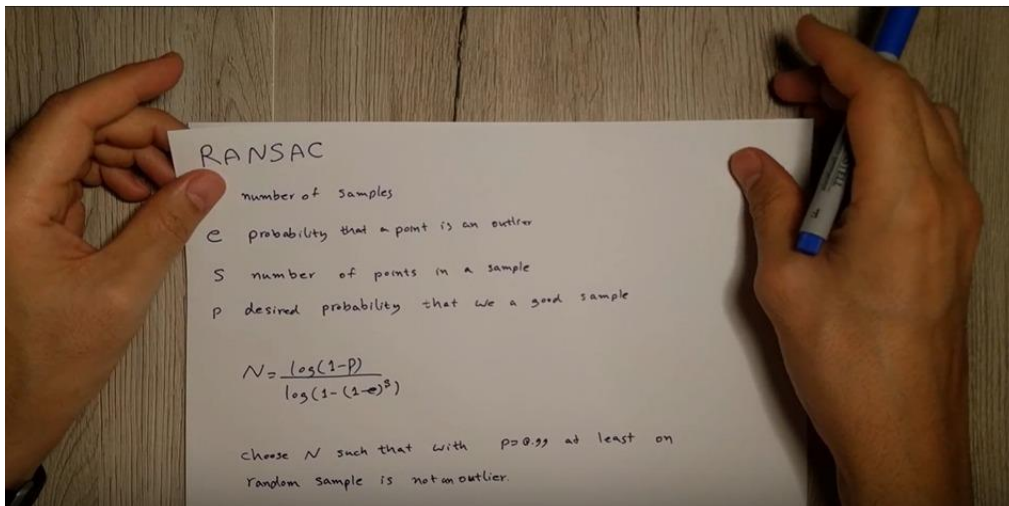 RANSAC
number of samples
e probability that a point is an outlier
s number of points in a sample
p desired probability that we a good sample
N = log(1-p)
log(1-(1-e)^s)
choose N such that with p=0.99 at least on
random sample is not an outlier.